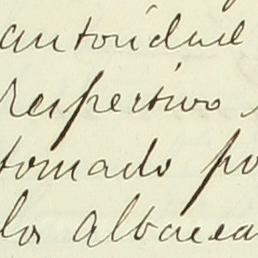 autoridad
respectivo
tomado po
los albacea